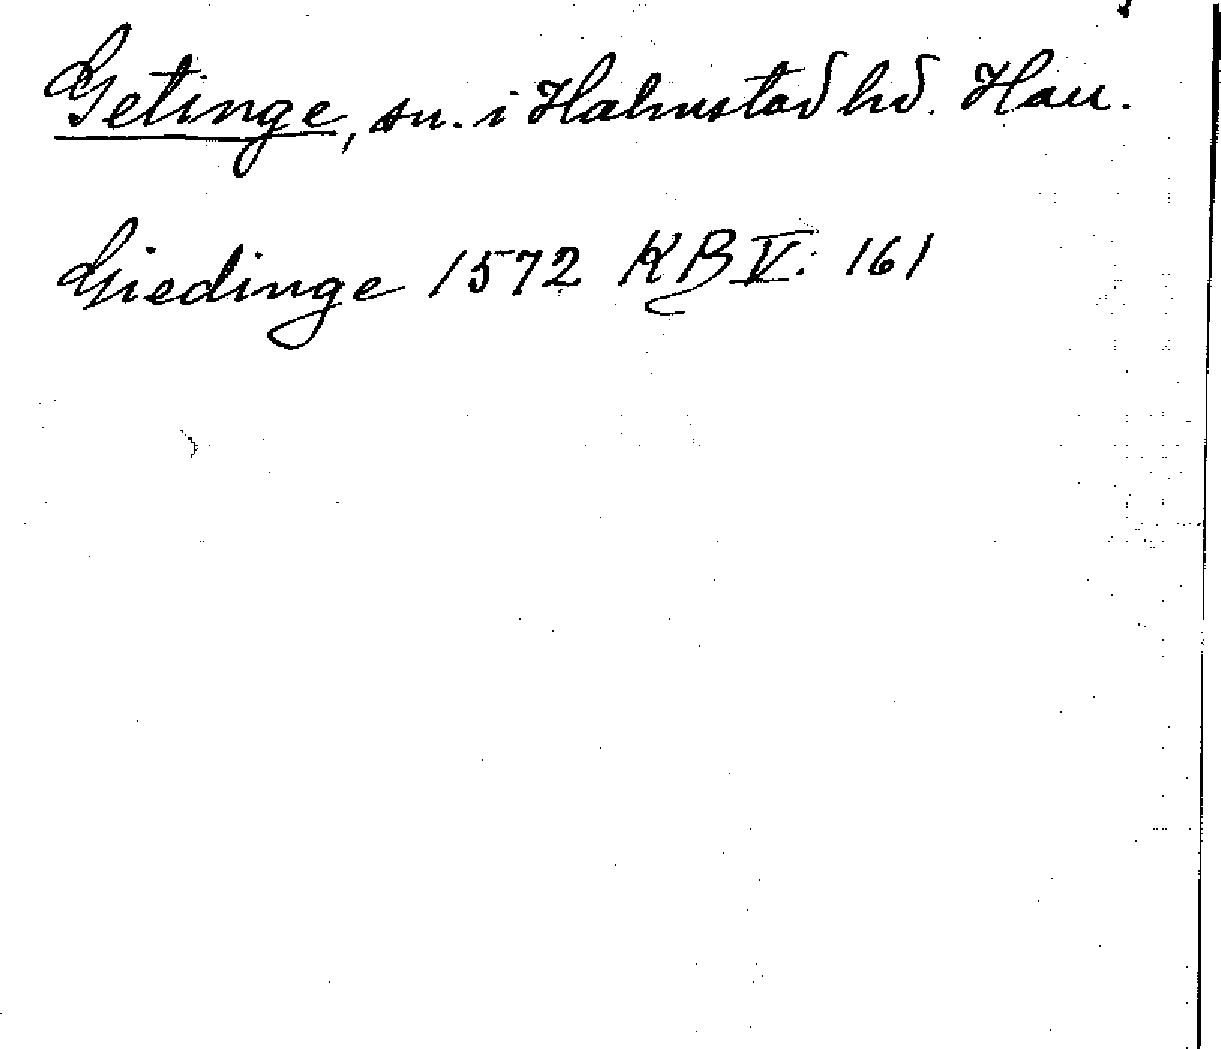 Getinge, sn. i Halmstad hd. Hall.
Giedinge 1572 KB V: 161